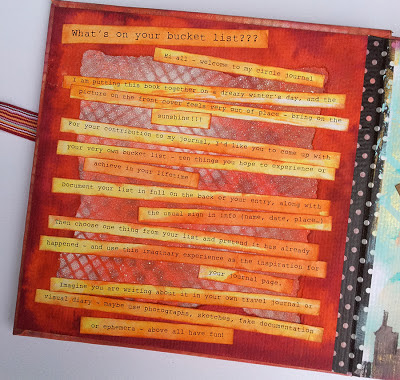 What's on your bucket list???
Hi all - welcome to my circle journal
I am putting this book together on a dreary winter's day, and the
picture on the front cover feels very out of place - bring on the
sunshine!!!
For your contribution to my journal, I'd like you to come up with
your very own bucket list - ten things you hope to experience or
achieve in your lifetime
Document your list in full on the back of your entry, along with
the usual sign in info (name, date, place…).
Then choose one thing from your list and pretend it has already
happened - and use this imaginary experience as the inspiration for
your journal page.
Imagine you are writing about it in your own travel journal or
visual diary - maybe use photographs, sketches, fake documentation
or ephemera - above all have fun!